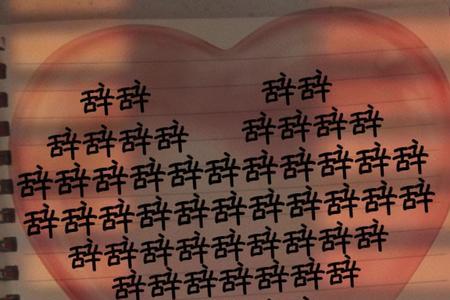 辞辞 辞辞
辞辞辞辞 辞辞辞辞
辞辞辞辞辞辞辞辞辞辞辞
辞辞辞辞辞辞辞辞辞辞辞
辞辞辞辞辞辞辞辞辞
辞辞辞辞辞辞辞